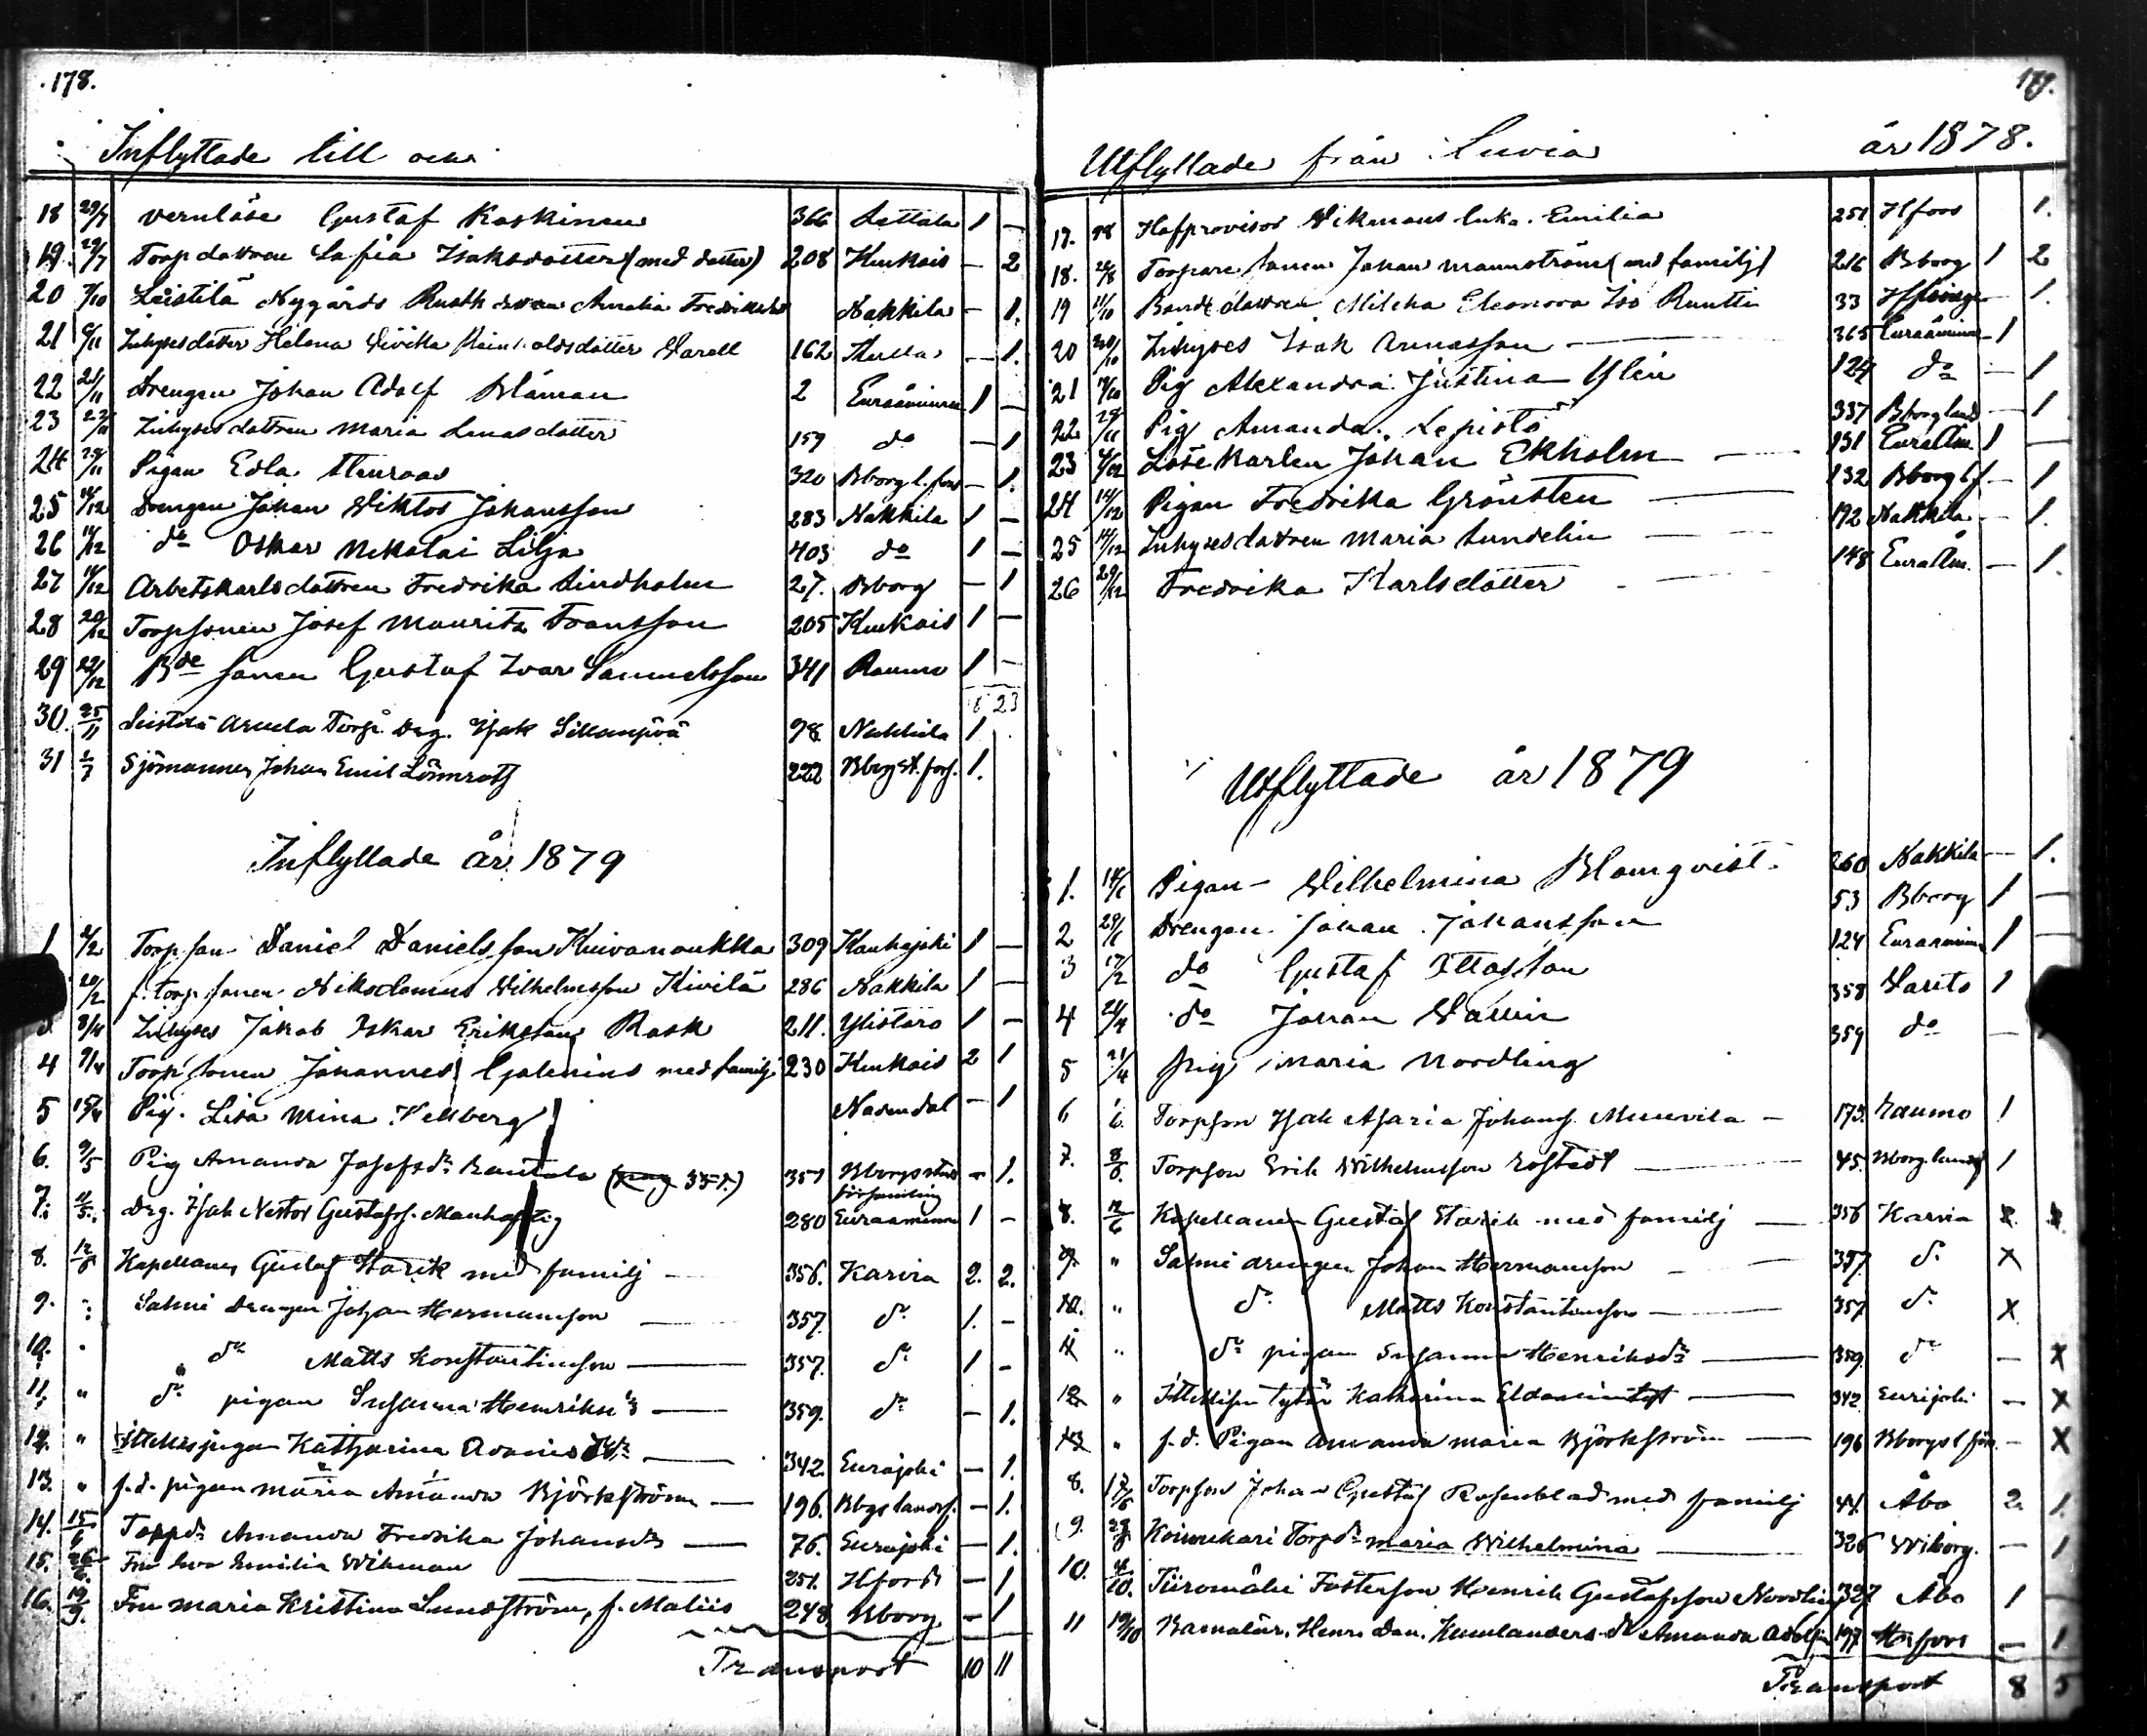 178.
Inflyttade till och
18 29/7 vernlöse Gustaf Koskinen 366 Lattala 1 —
19. 29/7 Torp dottren Sofia Isaksdotter (med dotter) 208 Kiukais — 2
20 7/10 Leistilä Nygårds Rusth Amalia Nakkila — 1.
21 Inhysesdotter Helena Reinholdsdotter Warell 162 Kulla — 1.
22 21/11 Drengen Johan Adolf Blåman 2 Euraåminne 1 —
23 Inhyses dottren Maria Linasdotter 159 do — 1
24 Pigan Edla Stenroos 320 Bborg l. förs — 1.
25 14/12 Drengen Johan Wiktor Johansson 283 Nakkila 1 —
26 14/12 do Oskar Nikolai Lilja 403 do 1 —
27 14/12 Arbetskarls dottren Fredrika Lindholm 27. Bborg — 1
28 20/12 Torpsonen Josef Mauritz Fransson 205 Kiukais 1 —
29 22/12 Bde sonen Gustaf Ivar Samuelsson 341 Raumo 1 —
23
30. 25/11 Leistilä Torp. Drg. Isak Sillanpää 98 Nakkila 1
31 Sjömannen Johan Emil Lönnroth 222 Bbrg st. förs. 1.
Inflyttade år 1879
1 2/2 Torpson Daniel Danielsson Kuivanoukka 309 Kauhajoki 1 —
20/2 f. torp sonen Nikodemus Wilhelmsson Kivilä 286 Nakkila 1 —
8/4 Inhyses Jakob Oskar Eriksson Rask 211. Ylistaro 1 —
4 9/4 Torp sonen Johannes Golenius med familj 230 Kiukais 2 1
5 15/4 Pig. Lisa Mina Kellberg Nadendal — 1
6. 9/5 Pig Amanda Josefsdr Rantala (pag 357.) 357 Bborgs stads församling — 1.
7. Drg. Isak Nestor Gustafss. Manhaftig 280 Euraaminne 1 —
8. 12/6 Kapellanen Gustaf Starck med familj — 356. Karvia 2. 2.
9. " Salmi Drengen Johan Hermansson — 357. do 1. —
10. " do Matts Konstantinsson — 357. do 1 —
11. " do pigan Susanna Henriksdr — 359. do — 1.
12. " pigan Katharina — 342. Eurajoki — 1.
13. " f.d. pigan Maria Amanda Björkström — 196. Bbgs landsf. — 1.
14. 15/6 Torpdr Amanda Fredrika Johansdr — 76. Eurajoki — 1.
15. 26 Fru Eva Emilia Wikman — 251. Hfors — 1
16. 19/9. Fru Maria Kristina Lundström, f. Maliis 248. Bborg — 1
Transport 10 11
179.
Utflyttade från Luvia år 1878.
17. Hofprovisor Wikmans Emilia 251 Hfors 1.
18. Torpare sonen Johan Mannström (med familj) 216 Bborg 1 2
19 11/10 Bonde dottren Milcha Eleonora Iso Ruutti 33 — 1.
20 20/10 Inhyses Isak Annasson — 365 Euraåminne 1
21 Pig Alexandra Justina Ylen 124 do — 1
22 Pig Amanda Lepistö 337 Bborg land — 1
23 Lösekarlen Johan Ekholm — 131 Euraåm. 1 —
24 14/12 Pigan Fredrika Grönsten — 132 Bborg l f — 1
25 14/12 Inhyses dottren Maria Lundelin — 192 Nakkila — 1.
26 29/12 Fredrika Karlsdotter — 148 Euraåm. — 1.
Utflyttade år 1879
1. Pigan Wilhelmina Blomqvist. 260 Nakkila — 1.
2 Drengen Johan Johansson 53 Bborg 1 —
3 17/2 do Gustaf Ottosson 124 Euraaminne 1 —
4 21/4 do Johan Wallin 358 1
5 21/4 pig Maria Nordling 359 do —
6 Torpson Isak Asaria Johanss. — 173. Raumo 1
7. 8/6. Torpson Erik Wilhelmsson Rostedt — 45. Bborg landsf 1
8. 12/6 Kapellanen Gustaf Starck med familj — 356 Karvia
9. " Salmi drengen Johan Hermansson — 357. do X
10. " do Matts Konstantinsson — 357 do X
11 " do pigan Susanna Henriksdr — 359. do — X
12 " Katharina — 342 Eurijoki — X
13 " f.d. Pigan Amanda Maria Björkström — 196 Bborgs l förs. — X
8. 17/6 Torpson Johan Gustaf Rosenblad med familj 41. Åbo 2 1.
9. Koivukari Torpdr Maria Wilhelmina — 326 Wiborg. — 1
10. Tiiromäki Fosterson Henrik Gustafsson Nordling 327 Åbo 1 —
11 19/10 Henr. Dan. Kumlanders dr Amanda 197 Hfors — 1
Transport 8 5